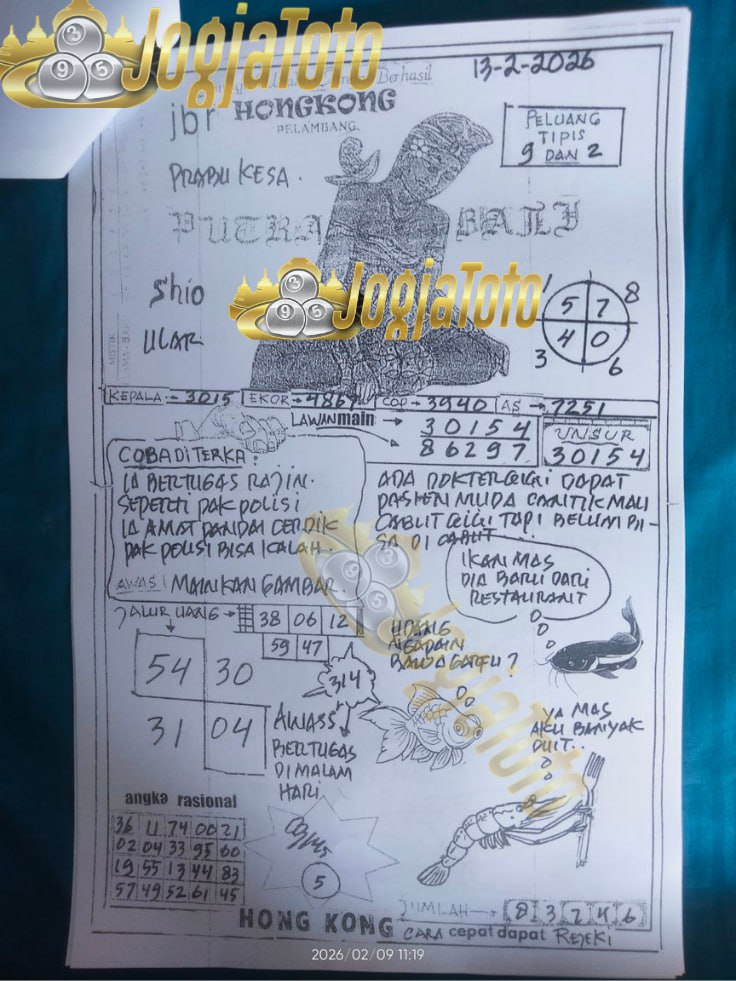 JogjaToto
Berhasil
13-2-2026
jbr HONGKONG
PELAMBANG
PELUANG
TIPIS
9 DAN 2
PRABU KESA.
PUTRA BALI
JogjaToto
Shio
ULAR
1 5 7 8
3 4 0 6
KEPALA → 3015 EKOR → 4867 COP → 3940 AS → 7251
LAWAN main → 30154
86297
UNSUR
30154
COBA DITERKA:
IA BERTUGAS RAJIN.
SEPERTI PAK POLISI
IA AMAT PANDAI CERDIK
PAK POLISI BISA KALAH.
AWAS! MAINKAN GAMBAR.
ADA DOKTER GIGI DAPAT
PASHEN MUDA CANTIK MAU
CABUT GIGI TAPI BELUM BI-
SA DI CABUT...
IKAN MAS
DIA BARU DARI
RESTAURANT
JALUR UANG → 38 06 12
59 47
54 30
31 04
314
UDANG
NGAPAIN
BAWA GARFU?
AWASS
BERTUGAS
DI MALAM
HARI.
YA MAS
AKU BANYAK
DUIT..
JogjaToto
angka rasional
36 11 74 00 21
02 04 33 95 60
19 55 13 44 83
57 49 52 61 45
5
JUMLAH → 8 3 7 4 6
HONG KONG CARA cepat dapat REJEKI
2026/02/09 11:19